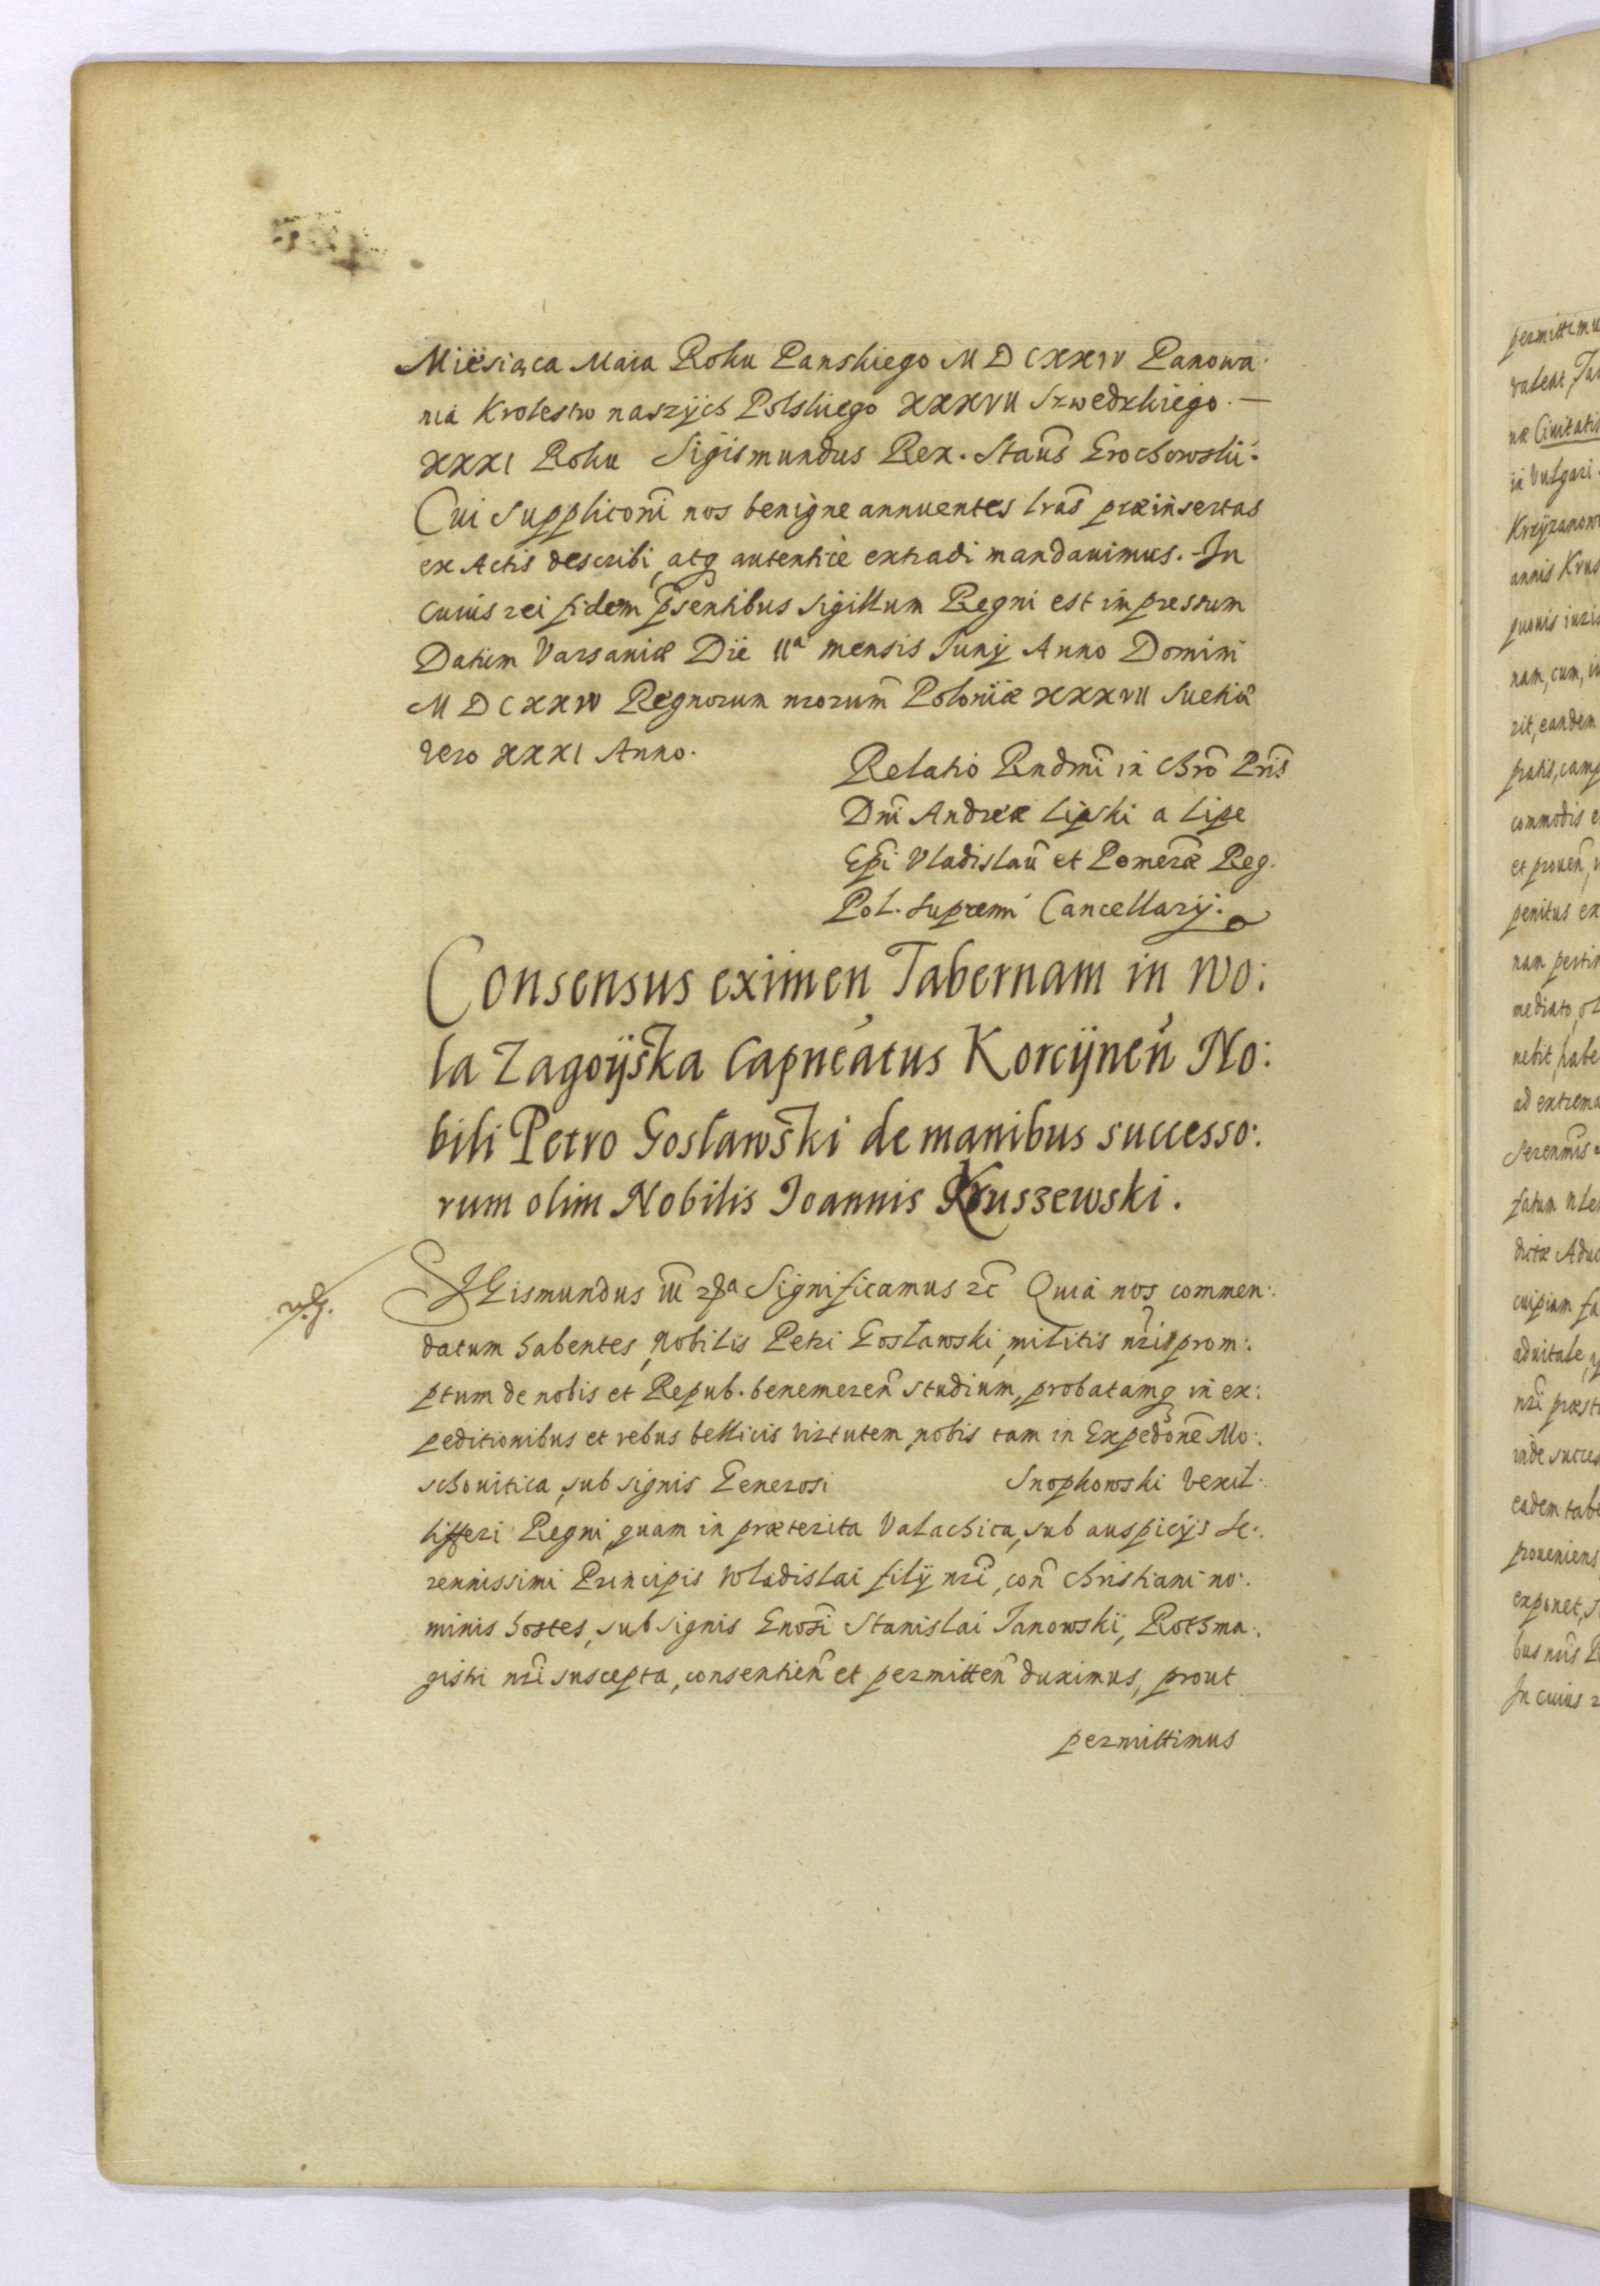 Miesiąca Maia Roku Panskiego M D C XX IV Panowa:
nia Krolestw naszych Polskiego XXXVII Szwedzkiego.—
XXXI Roku Sigismundus Rex. Stans Grochowski:
Cui suppliconi nos benigne annuentes lras præinsertas
ex Actis describi, atq autentice extradi mandauimus. In
cuius rei fidem psentibus Sigillum Regni est impressum
Datum Varsaviæ Die IIa mensis Iunij Anno Domini
M D C XX IV Regnorum nrorum Poloniæ XXXVII Sueciæ
vero XXXI Anno.
Relatio Rndmi in Chro Pris
Dni Andreæ Lipski a Lipe
Epi Vladislau et Pomeræ Reg.
Pol. Supremi Cancellarij.
Consensus eximen Tabernam in Wo:
la Zagoyska Capneatus Korcynen No:
bili Petro Gosławski de manibus successo:
rum olim Nobilis Joannis Kruszewski.
SIGismundus III Significamus etc Quia nos commen:
datum habentes, Nobilis Petri Gosławski, militis nri prom:
ptum de nobis et Repub. benemeren studium, probatamq in ex:
peditionibus et rebus bellicis virtutem nobis tam in Expedone Mo:
schouitica, sub signis Generosi Snopkowski Vexil:
liferi Regni, quam in præterita Valachica, sub auspicijs Se:
renissimi Principis Vladislai filij nri, con Christiani no:
minis hostes, sub signis Gnosi Stanislai Janowski, Rothma:
gistri nri suscepta, consentien et permitten duximus, prout
permittimus
permittimu
valeat
næ Ciuitatis
in Vulgari
annis Krus
nam, cum, in
rit, eandem
pratis, camp
commodis e
et prouen,
penitus ex
nam pertin
mediato
ad extrema
Serenmis
cuipiam fa
aduitale
nri præst
inde succes
eadem tabe
proueniens
exponet
bus nris R
In cuius